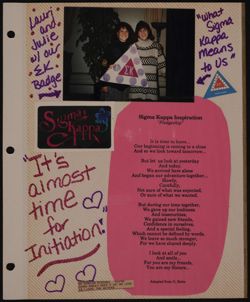 Lauri
and
Julie
w/ our
ΣK
Badge
"What
Sigma
Kappa
means
to
US"
Sigma
Kappa
"It's
almost
time
for
Initiation!"
Sigma Kappa Inspiration
"Pledgeship"
It is time to leave...
Our beginning is coming to a close
And so we look toward tomorrow...
But let us look at yesterday
And today.
We arrived here alone
And began our adventure together...
Slowly,
Carefully,
Not sure of what was expected,
Or sure of what we wanted.
But during our time together,
We gave up our loneliness
And insecurities,
We gained new friends,
Confidence in ourselves,
And a special feeling,
Which cannot be defined by words.
We leave so much stronger,
For we have shared deeply.
I look at all of you
And smile...
For you are my friends,
You are my Sisters...